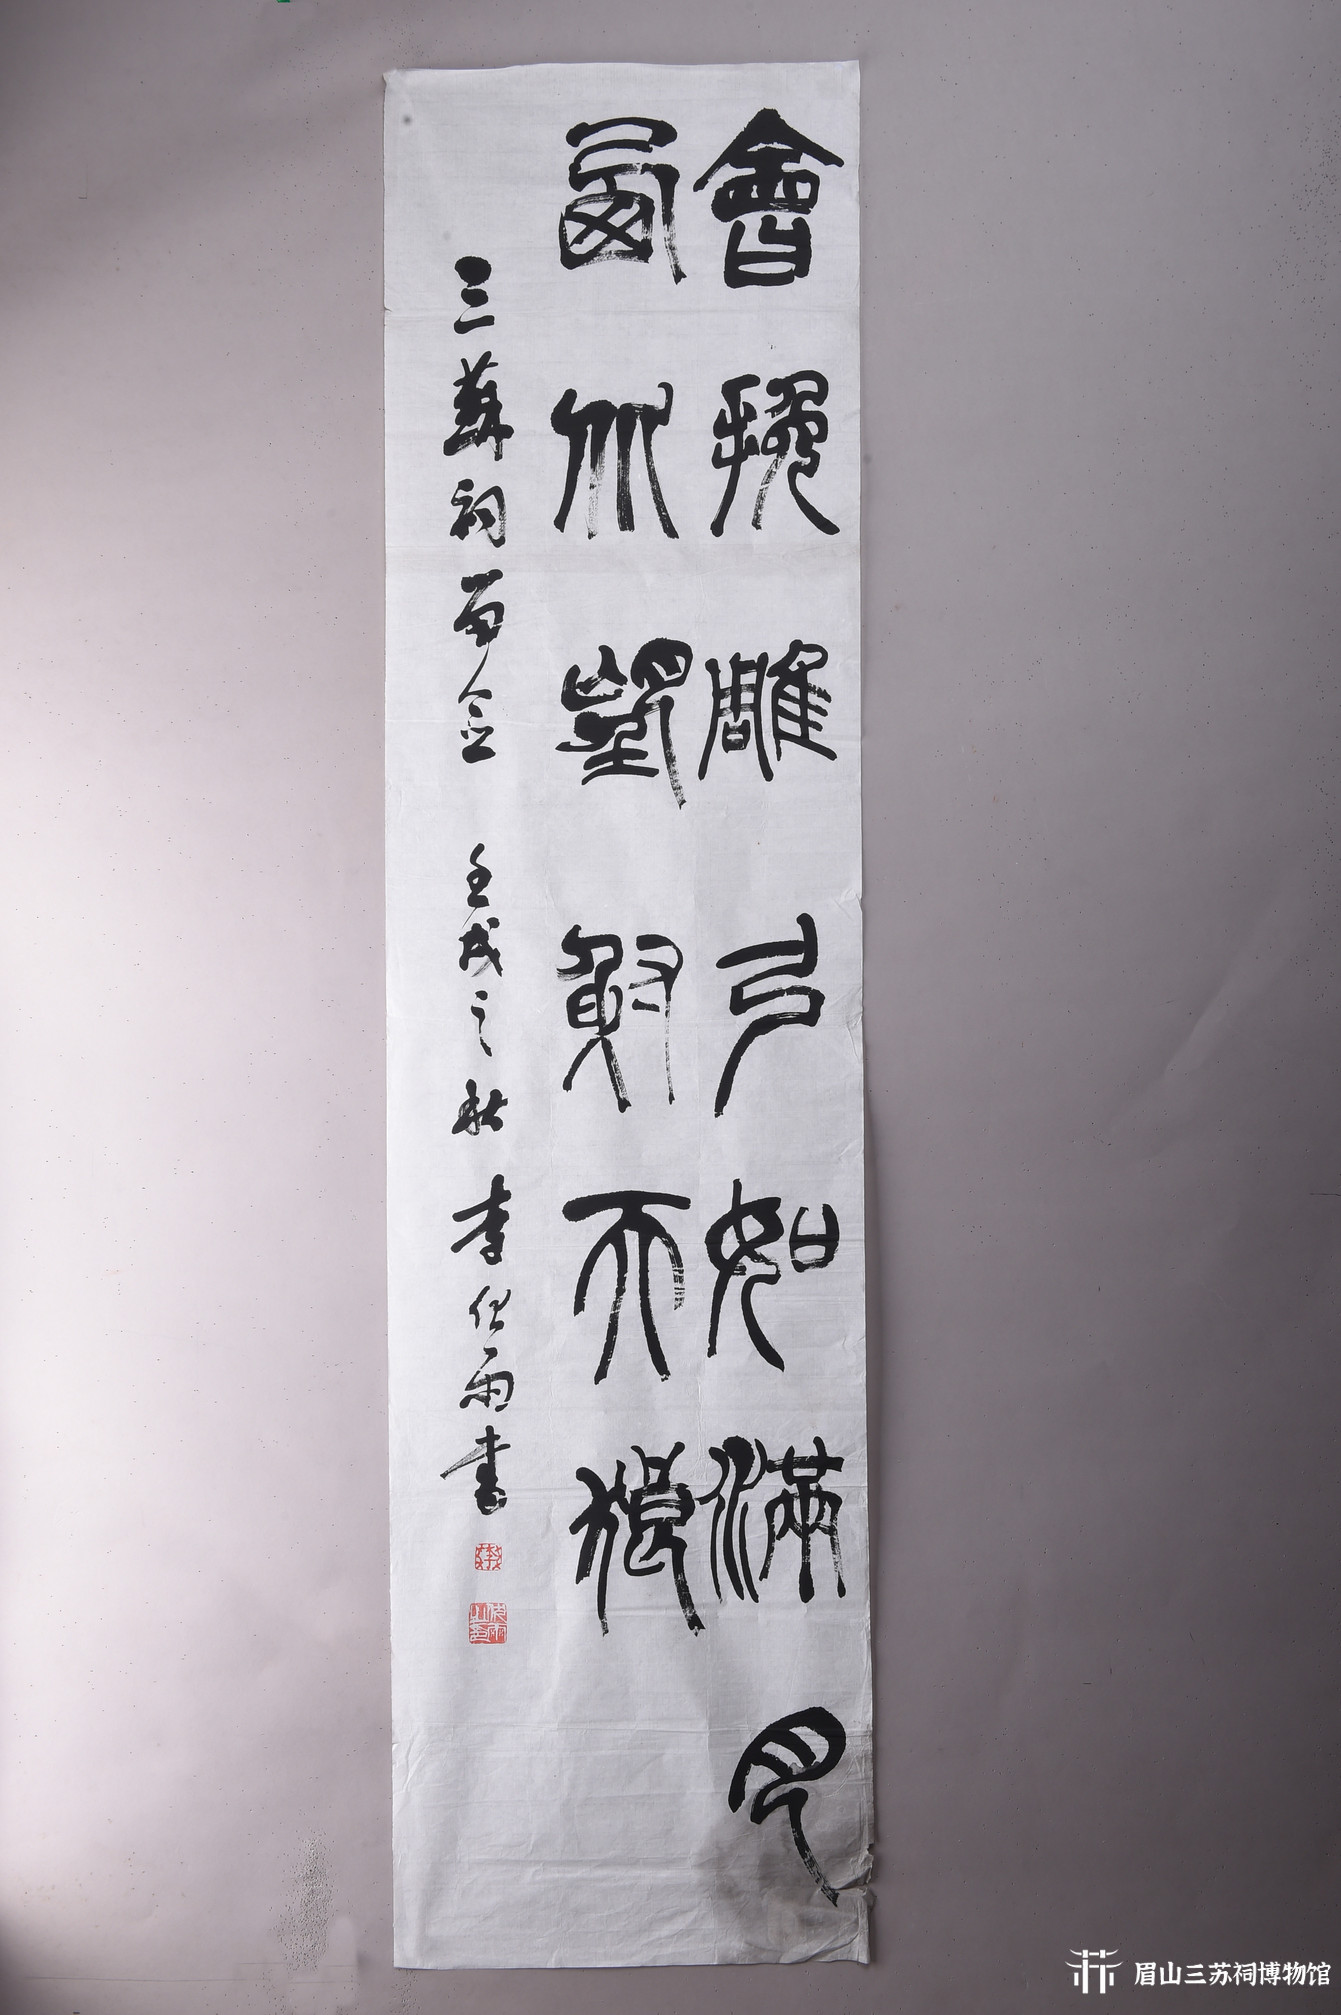 會挽雕弓如滿月
西北望射天狼
三蘇祠留念 壬戌之秋 李伏雨書
眉山三苏祠博物馆